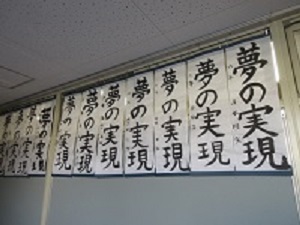 夢の実現
夢の実現
夢の実現
夢の実現
夢の実現
夢の実現
夢の実現
夢の実現